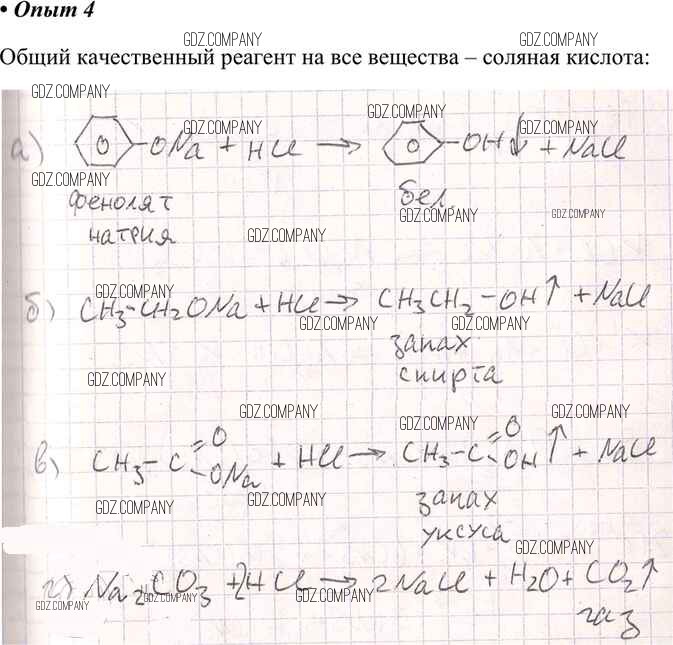 • Опыт 4
GDZ.COMPANY GDZ.COMPANY
Общий качественный реагент на все вещества – соляная кислота:
GDZ.COMPANY
GDZ.COMPANY
GDZ.COMPANY GDZ.COMPANY
а) ⌬-ONa + HCl → ⌬-OH↓ + NaCl
GDZ.COMPANY
фенолят бел.
GDZ.COMPANY GDZ.COMPANY
натрия
GDZ.COMPANY
GDZ.COMPANY
б) CH3-CH2ONa + HCl → CH3CH2-OH↑ + NaCl
GDZ.COMPANY GDZ.COMPANY
запах
спирта
GDZ.COMPANY
GDZ.COMPANY GDZ.COMPANY
GDZ.COMPANY
в) CH3-C=O ONa + HCl → CH3-C=O OH↑ + NaCl
запах
GDZ.COMPANY GDZ.COMPANY
уксуса
GDZ.COMPANY
GDZ.COMPANY
г) Na2CO3 + 2HCl → 2NaCl + H2O + CO2↑
GDZ.COMPANY GDZ.COMPANY GDZ.COMPANY
газ
GDZ.COMPANY